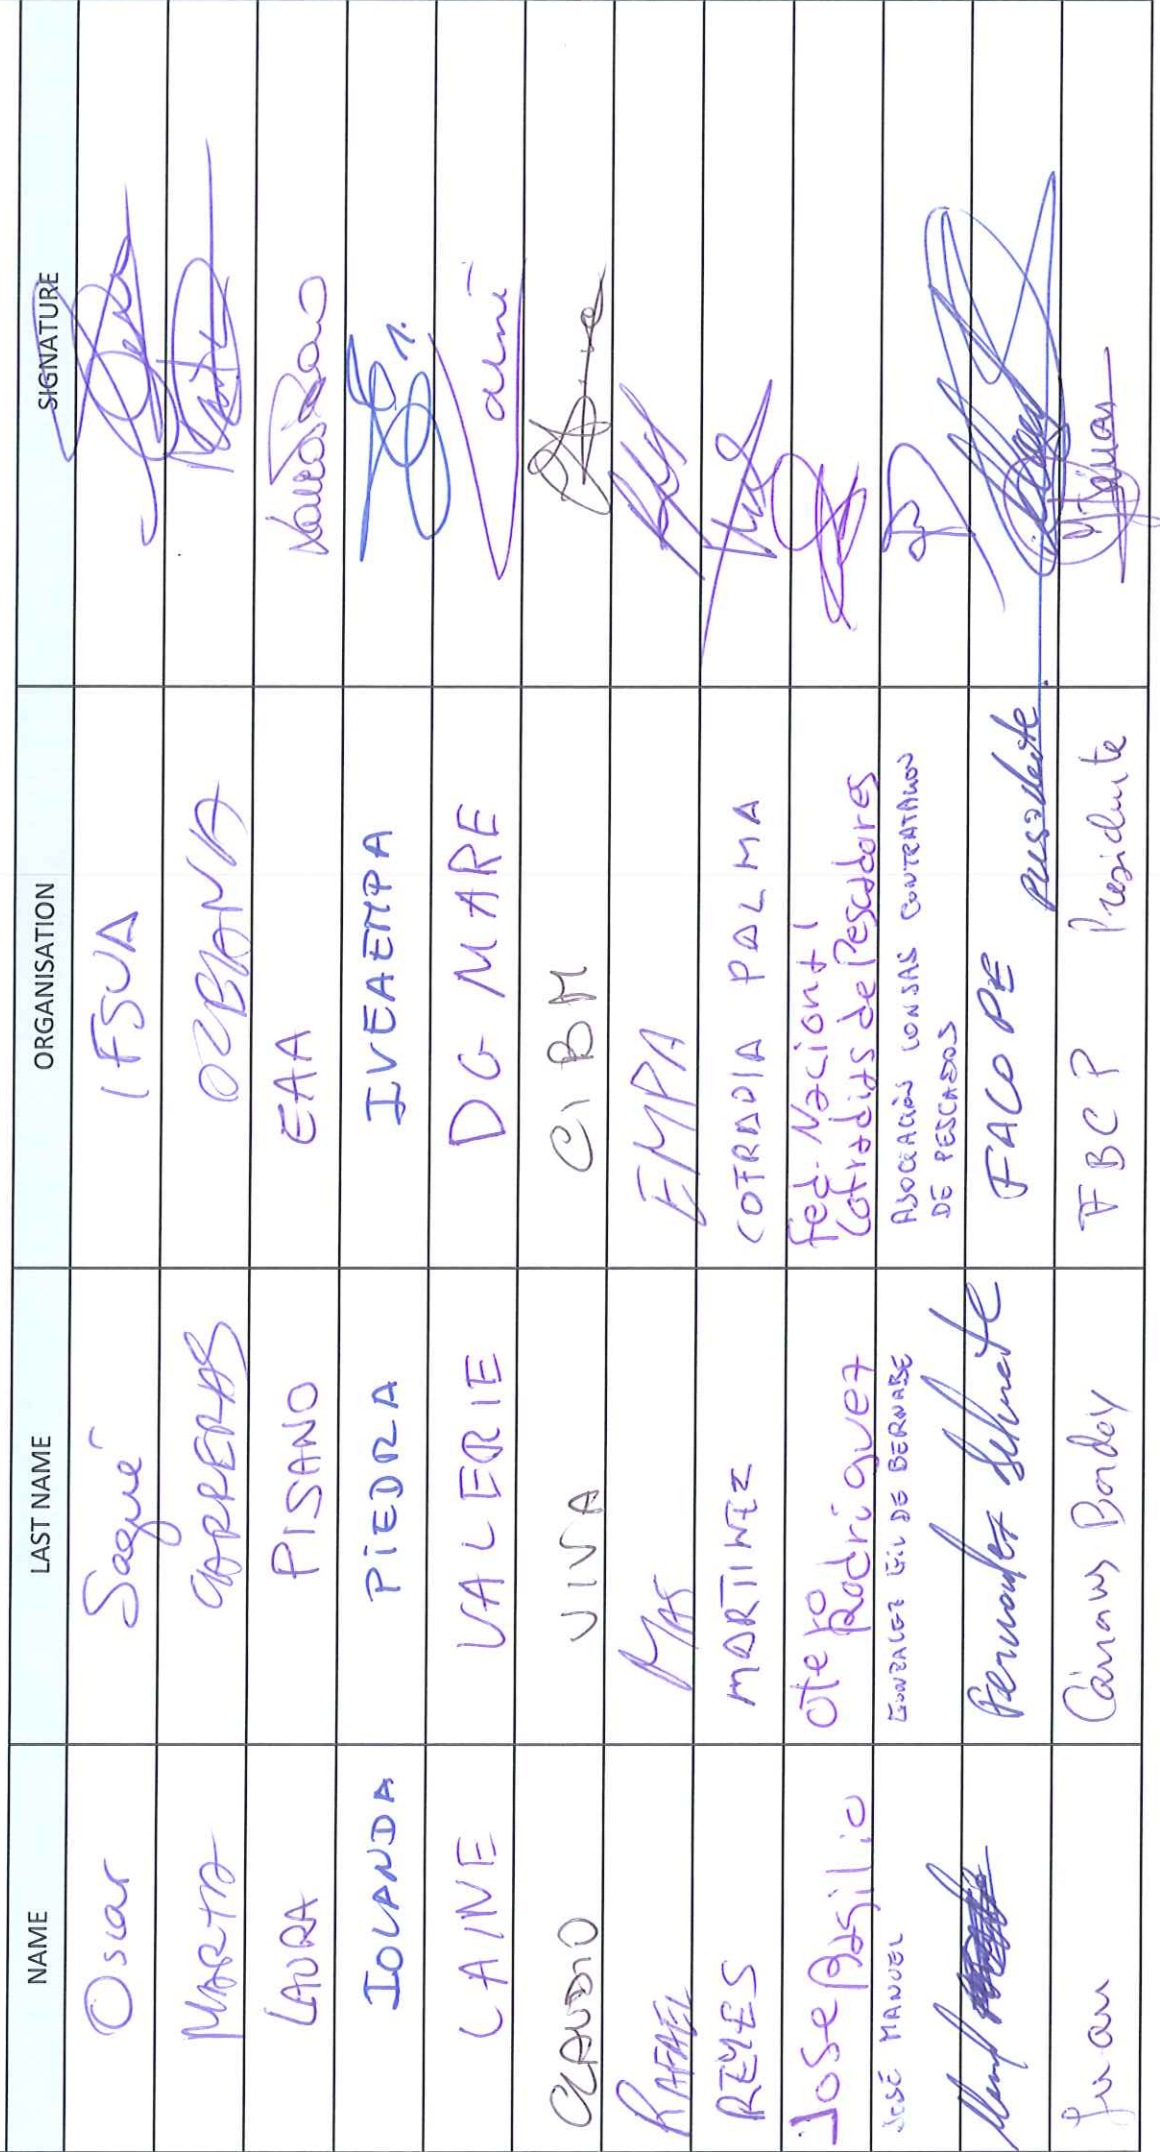 NAME LAST NAME ORGANISATION SIGNATURE
Oscar Sagué IFSUA
MARTA CARRERAS OCEANA
LAURA PISANO EAA
IOLANDA PIEDRA IVEAEMPA
LAINE VALERIE DG MARE
CLAUDIO VIVA CIBM
RAFAEL MAS EMPA
REYES MARTINEZ COFRADIA PALMA
Jose Basilio Otero Rodriguez Fed. Nacional
Cofradias de Pescadores
JOSÉ MANUEL GONZALEZ GIL DE BERNABE ASOCIACIÓN LONJAS CONTRATACION
DE PESCADOS
Fernandez FACOPE Presidente
Juan Cànaves Bordoy FBCP Presidente